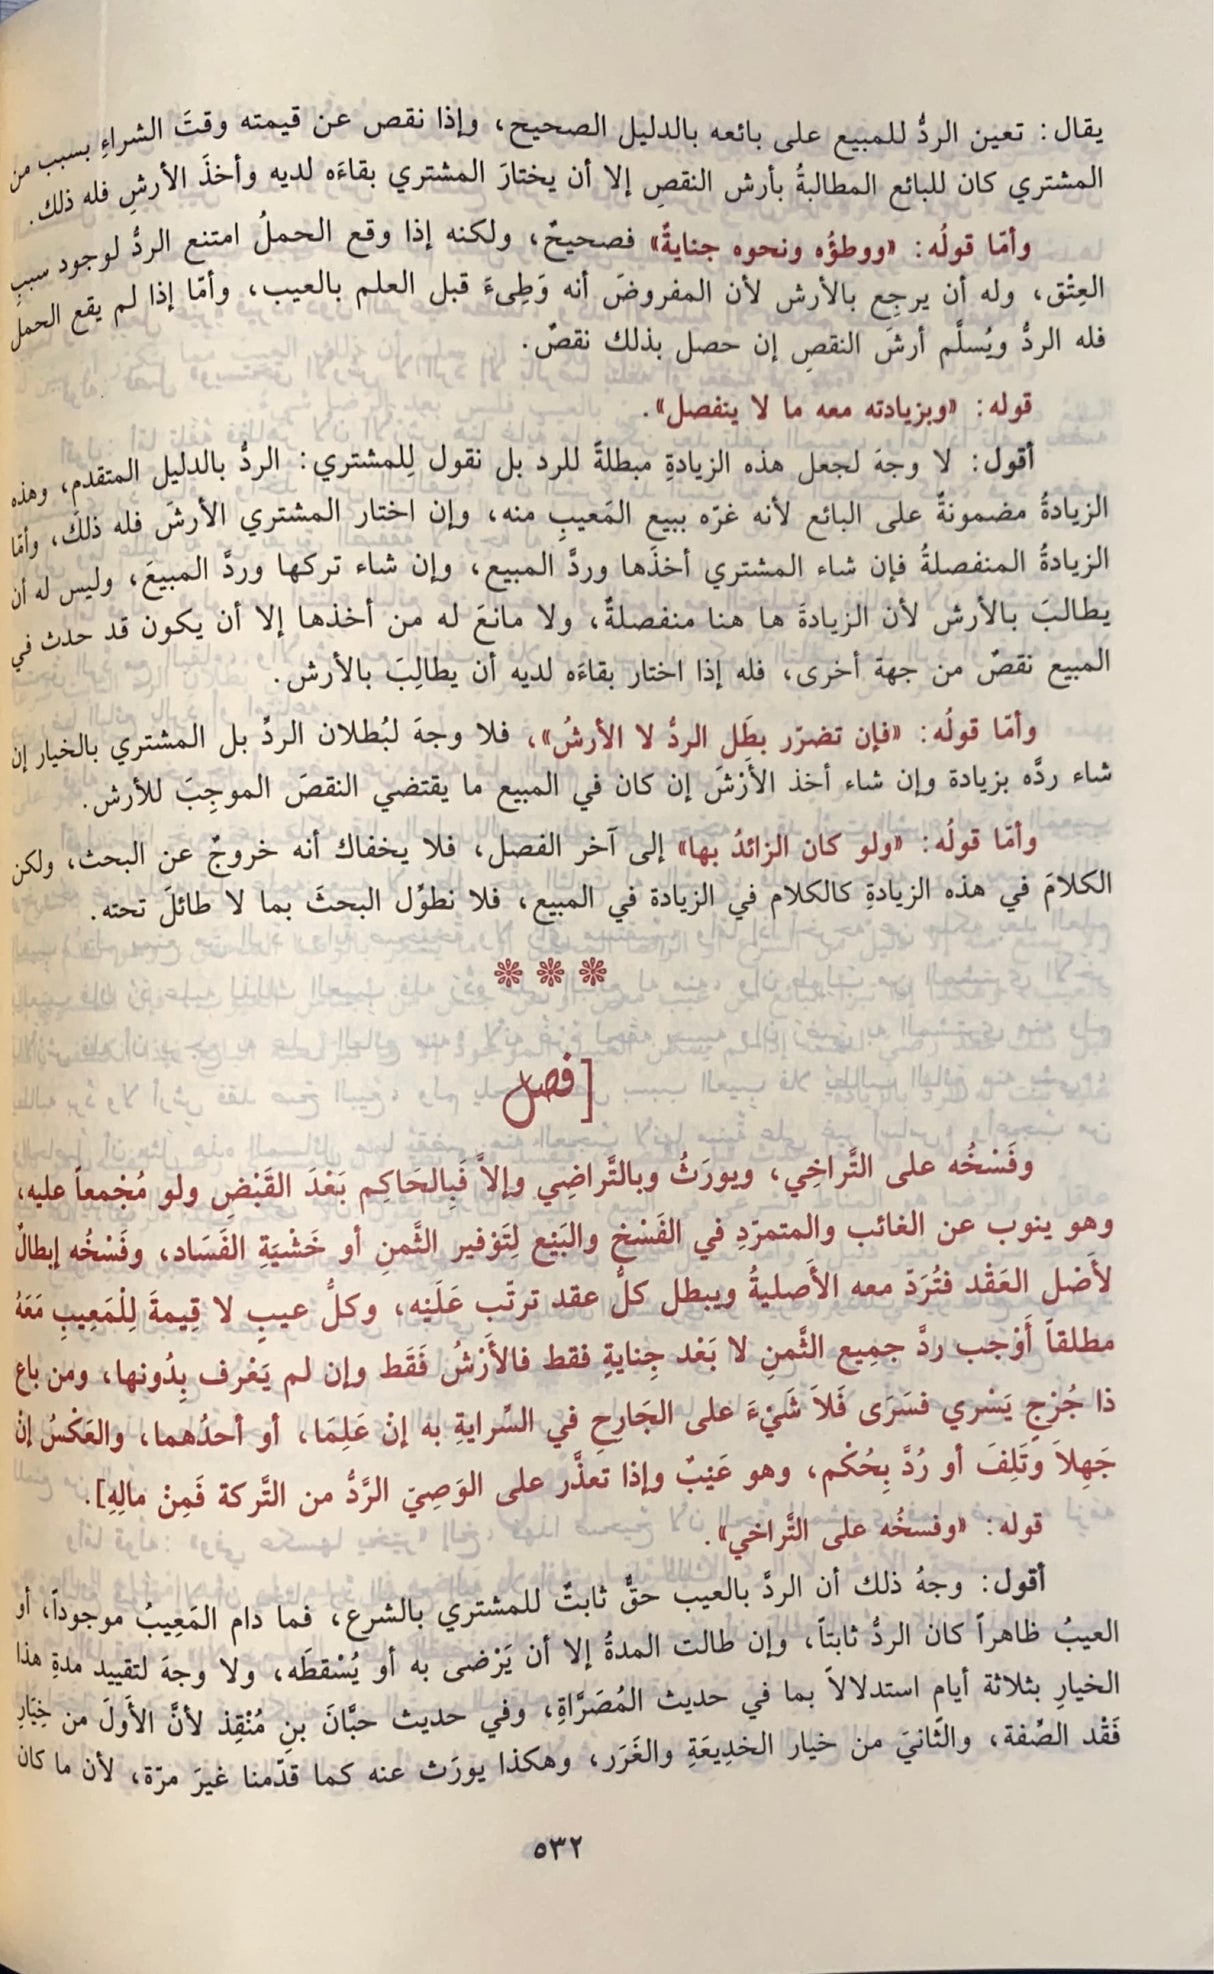 يقال: تعين الردُّ للمبيع على بائعه بالدليل الصحيح، وإذا نقص عن قيمته وقتَ الشراءِ بسبب من
المشتري كان للبائع المطالبةُ بأرش النقصِ إلا أن يختارَ المشتري بقاءَه لديه وأخذَ الأرشِ فله ذلك.
وأمّا قولُه: «ووطؤُه ونحوه جنايةٌ» فصحيحٌ، ولكنه إذا وقع الحملُ امتنع الردُّ لوجود سببِ
العِتْق، وله أن يرجِع بالأرش لأن المفروضَ أنه وَطِىءَ قبل العلم بالعيب، وأمّا إذا لم يقع الحملُ
فله الردُّ ويُسلَّم أرشَ النقصِ إن حصل بذلك نقصٌ.
قوله: «وبزيادته معه ما لا ينفصل».
أقول: لا وجهَ لجعل هذه الزيادةِ مبطلةً للرد بل نقول لِلمشتري: الردُّ بالدليل المتقدم، وهذه
الزيادةُ مضمونةٌ على البائع لأنه غرّه ببيع المَعيبِ منه، وإن اختار المشتري الأرشَ فله ذلك، وأمّا
الزيادةُ المنفصلةُ فإن شاء المشتري أخذَها وردَّ المبيع، وإن شاء تركها وردَّ المبيعَ، وليس له أن
يطالبَ بالأرش لأن الزيادةَ ها هنا منفصلةٌ، ولا مانعَ له من أخذها إلا أن يكون قد حدث في
المبيع نقصٌ من جهة أخرى، فله إذا اختار بقاءَه لديه أن يطالِبَ بالأرش.
وأمّا قولُه: «فإن تضرّر بطَل الردُّ لا الأرشُ»، فلا وجهَ لبُطلان الردِّ بل المشتري بالخيار إن
شاء ردَّه بزيادة وإن شاء أخذ الأَرْشَ إن كان في المبيع ما يقتضي النقصَ الموجِبَ للأرش.
وأمّا قولُه: «ولو كان الزائدُ بها» إلى آخر الفصل، فلا يخفاك أنه خروجٌ عن البحث، ولكن
الكلامَ في هذه الزيادةِ كالكلام في الزيادة في المبيع، فلا نطوِّل البحثَ بما لا طائلَ تحته.
[فصل
وفَسْخُه على التَّراخِي، ويورَثُ وبالتَّراضِي وإلاَّ فَبِالحَاكِم بَعْدَ القَبْضِ ولو مُجْمعاً عليه،
وهو ينوب عن الغائب والمتمرّدِ في الفَسْخ والبَيْع لِتَوْفير الثَّمنِ أو خَشْيَةِ الفَسَاد، وفَسْخُه إبطالٌ
لأَصْل العَقْد فتُرَدّ معه الأَصليةُ ويبطل كلُّ عقد ترتّب عَلَيْه، وكلُّ عيبٍ لا قِيمةَ لِلْمَعِيبِ مَعَهُ
مطلقاً أَوْجب ردَّ جمِيع الثَّمنِ لا بَعْد جِنايةٍ فقط فالأَرْشُ فَقَط وإن لم يَعْرف بِدُونها، ومن باع
ذا جُرْحٍ يَسْري فسَرَى فَلاَ شَيْءَ على الجَارِح في السِّرايةِ به إنْ عَلِمَا، أو أحدُهما، والعَكْسُ إنْ
جَهِلاَ وتَلِفَ أو رُدَّ بِحُكْم، وهو عَيْبٌ وإذا تعذَّر على الوَصِيّ الرَّدُّ من التَّركة فَمِنْ مالِهِ].
قوله: «وفسخُه على التَّراخي».
أقول: وجهُ ذلك أن الردَّ بالعيب حقٌّ ثابتٌ للمشتري بالشرع، فما دام المَعِيبُ موجوداً، أو
العيبُ ظاهراً كان الردُّ ثابتاً، وإن طالت المدةُ إلا أن يَرْضى به أو يُسْقطَه، ولا وجهَ لتقييد مدةِ هذا
الخيارِ بثلاثة أيام استدلالاً بما في حديث المُصَرَّاةِ، وفي حديث حبَّانَ بنِ مُنْقِذ لأنَّ الأَولَ من خِيَارِ
فَقْد الصِّفة، والثَّانيَ من خيار الخدِيعَةِ والغَرَر، وهكذا يورَث عنه كما قدّمنا غيرَ مرّة، لأن ما كان
٥٣٢